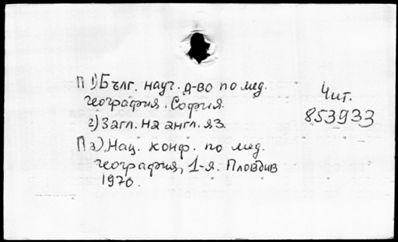 П 1) Бълг. науч. д-во по мед.
география. София.
2) Загл. на англ. яз.
П 3) Нац. конф. по мед.
география, 1-я. Пловдив
1970.
Чит.
853933